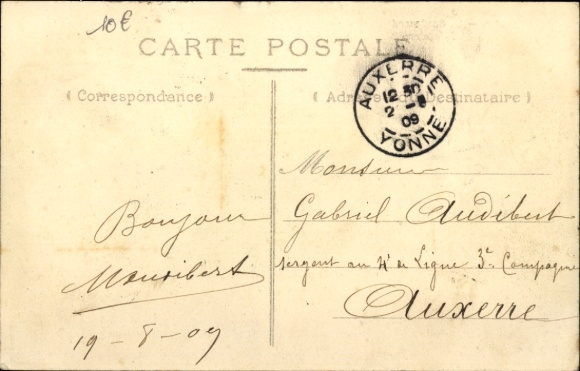 10€
CARTE POSTALE
(Correspondance)
(Adresse du Destinataire)
AUXERRE
12 30
2
09
YONNE
Monsieur
Gabriel Audibert
sergent au 4e de Ligne 3e Compagnie
Auxerre
Bonjour
19-8-09